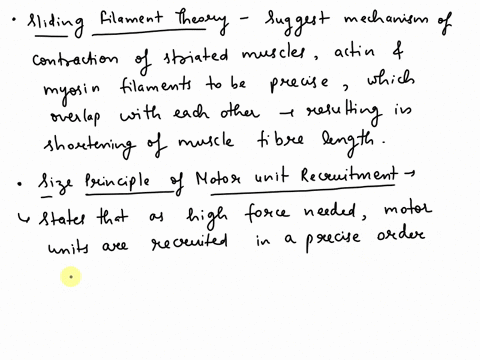 • Sliding filament Theory - Suggest mechanism of
contraction of striated muscles, actin &
myosin filaments to be precise, which
overlap with each other → resulting in
shortening of muscle fibre length.
• Size Principle of Motor unit Recruitment →
↳ States that as high force needed, motor
units are recruited in a precise order